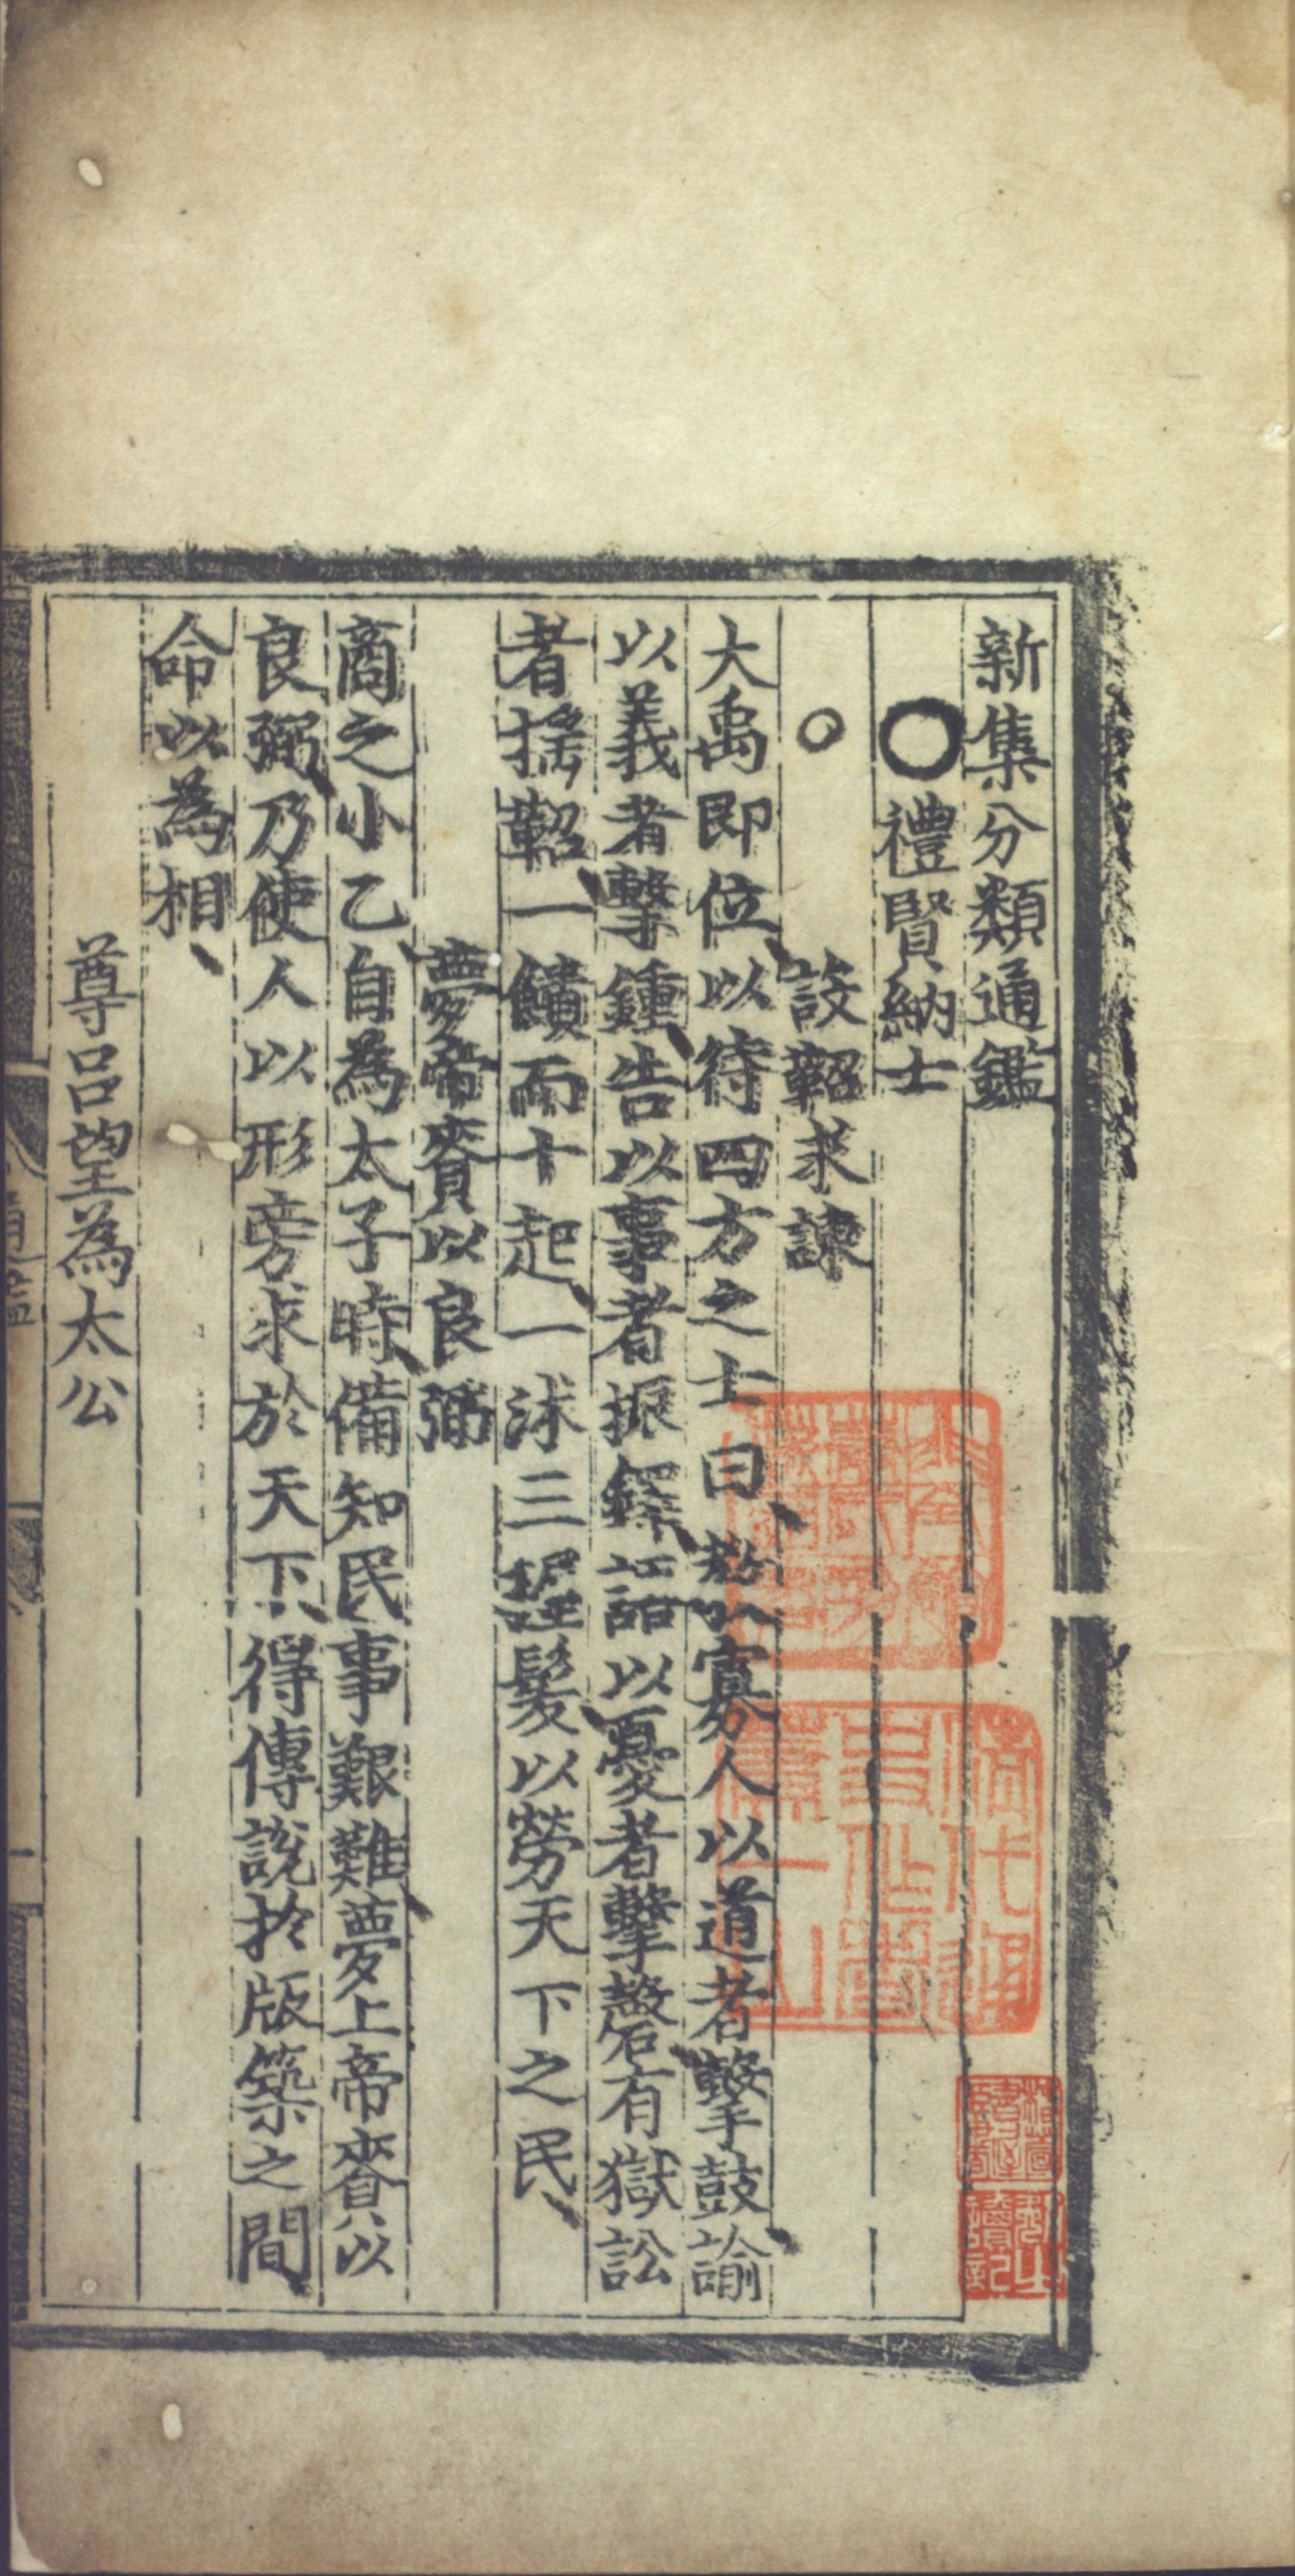 新集分類通鑑
〇禮賢納士
○　設鞀求諫
大禹即位以待四方之士曰教寡人以道者擊鼓諭
以義者擊鍾告以事者振鐸語以憂者擊磬有獄訟
者揺鞀一饋而十起一沐三握髮以勞天下之民
夢帝賚以良弼
商之小乙自為太子時備知民事艱難夢上帝賚以
良弼乃使人以形旁求於天下得傳說於版築之間
命以為相
尊呂望為太公